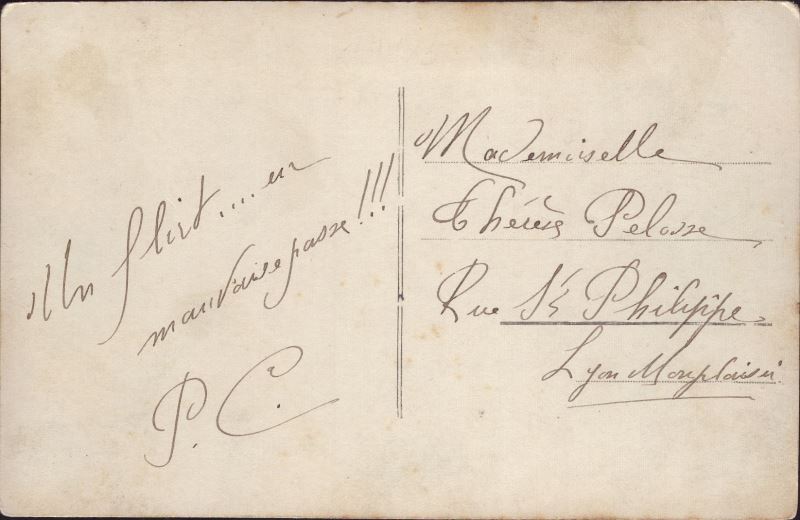 Un flirt.... en
mauvaise passe!!!
P. C.
Mademoiselle
Thérèse Pelosse
Rue St Philippe
Lyon Monplaisir